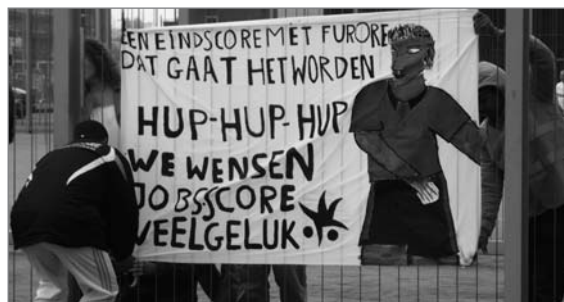 EEN EINDSCORE MET FURORE
DAT GAAT HET WORDEN
HUP-HUP-HUP
WE WENSEN
JOBSSCORE
VEEL GELUK